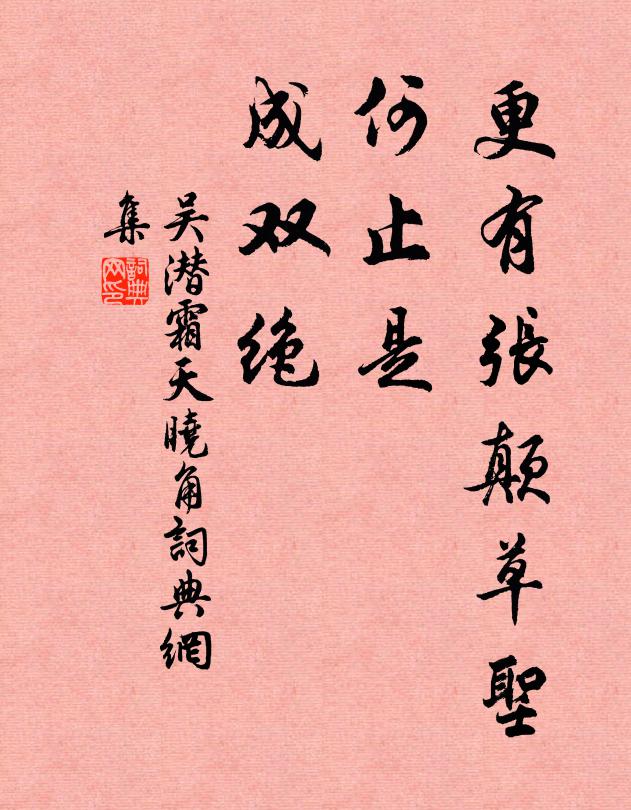 更有張颠草聖
何止是
成双绝
吴潜霜天曉角詞典網
集
詞典
网印